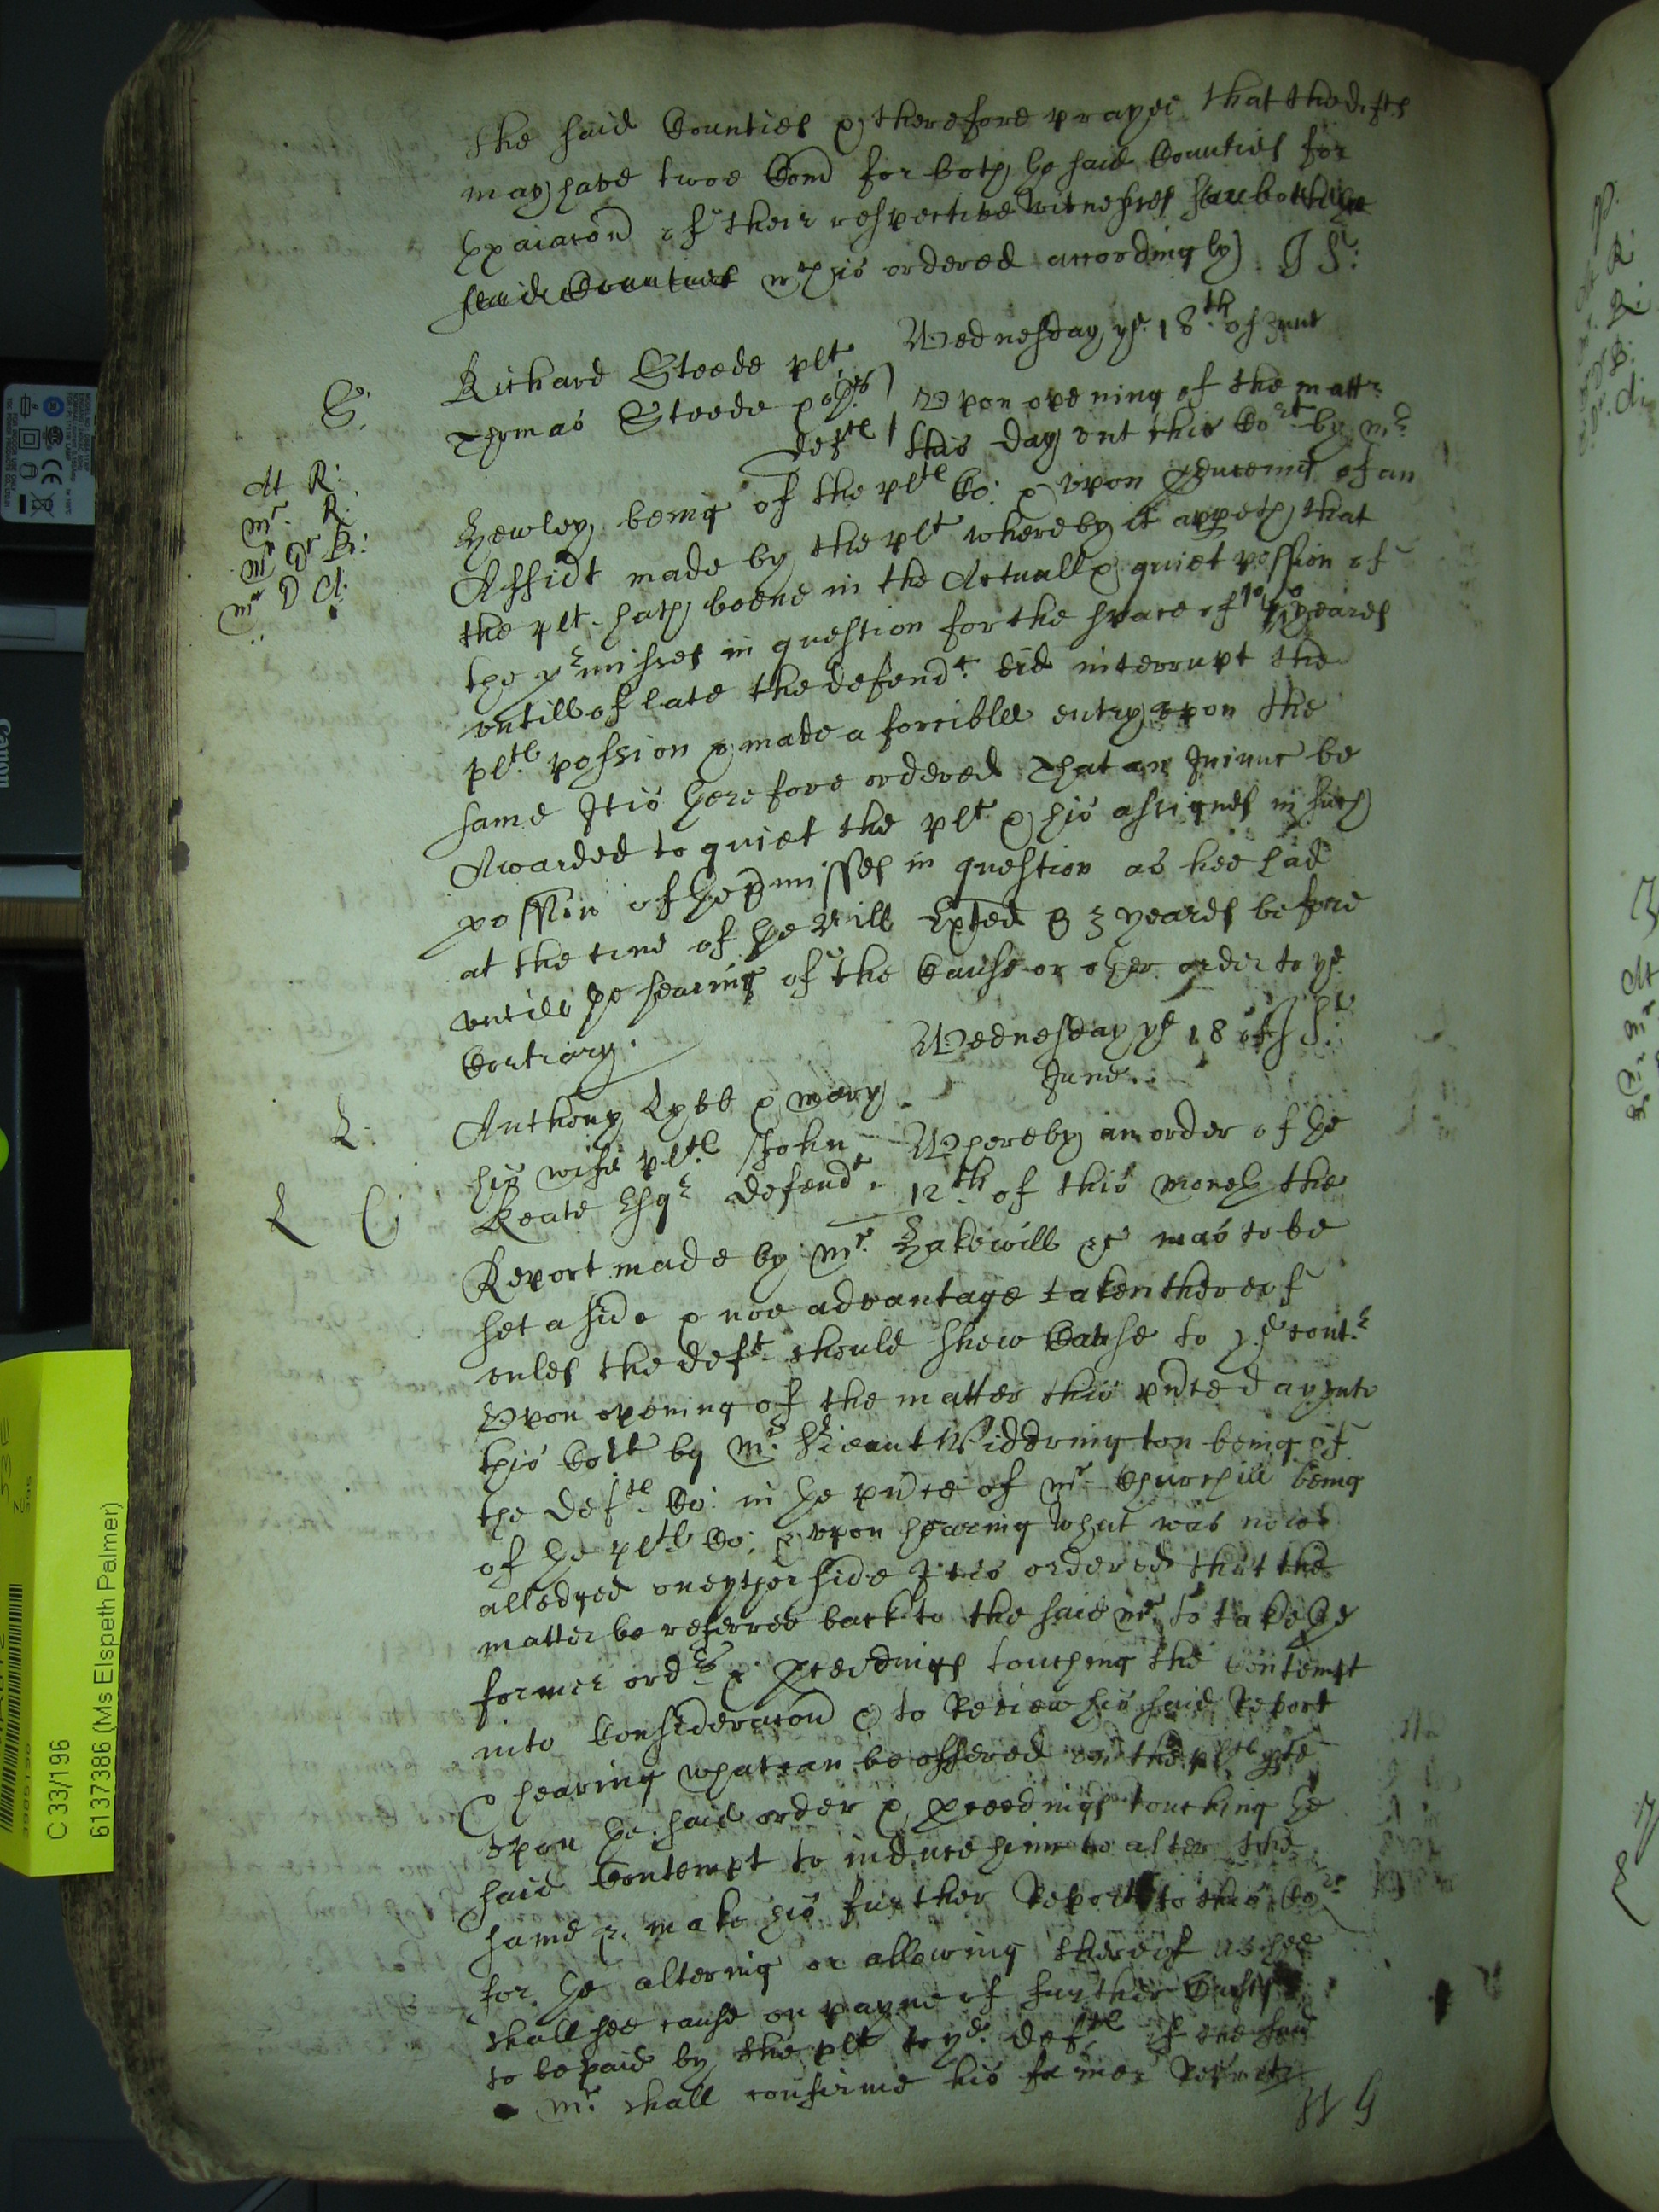 the said Counties & therefore prayed that the defts
may have twoe Com for both ye said Counties for
Exaiacon of their respective Witnesses
wch is ordered accordingly
Wednesday ye 18th of June
S.
Richard Steede plt
Thomas Steede
deftes
Upon opening of the mattr
this day unt this Cort by mr
At R:
mr. R.
mr Dr B:
mr D A:
being of the pltes Co: & upon of an
Affidt made by the plt whereby it appeth that
the plt hath beene in the Actuall & quiet possion of
the prmisses in question for the space of yeares
untill of late the defendt did interrupt the
pltes possion & made a forcible entry upon the
same It is herefore ordered That an Iniunc be
Awarded to quiet the plt & his assignes in such
possion of ye pmisses in question as hee had
at the time of ye Bill Exhted & 3 yeares before
untill ye hearing of the Cause or other order to ye
Contrary.
Wednesday ye 18 of
June.
L.
Anthony & Mary
his wife pltes John
Keate Esqr defendt
Whereby an order of ye
12th of this Moneth the
L C
Report made by Mr. Hakewill was to be
set aside & noe advantage taken thereof
unles the deft should shew Cause to ye contr
Upon opening of the matter this pnte day unto
this Cort by Mr. Widdrington being of
the deftes Co: in ye pnce of Mr Churchill being
of ye pltes Co: & upon hearing what was now
alledged on eyther side It is ordered that the
matter be referred back to the said Mr to take ye
former ordrs & pceedings touching the Contempt
into Consideracon & to Review his said Report
& hearing what can be offered on the pltes pte
upon ye said order & pceedings touching ye
said Contempt to induce him to alter the
same & make his further Report to this Cort
for ye altering or allowing thereof as hee
shall see cause on payme of further Costs
to be paid by the plt to ye deftes if the said
Mr. shall confirme his former Report
C 33/196
6137386 (Ms Elspeth Palmer)
Canon